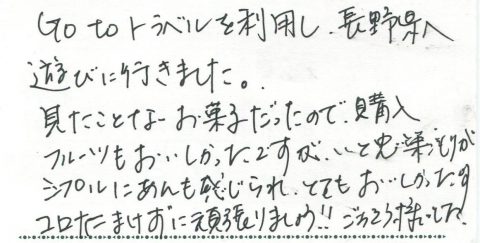 Go to トラベルを利用し、長野県へ
遊びに行きました。
見たことなーお菓子だったので、購入
フルーツもおいしかったですが、
シンプルにあんも感じられ、とてもおいしかったです
コロナにまけずに頑張りましょう!! ごちそう様でした。